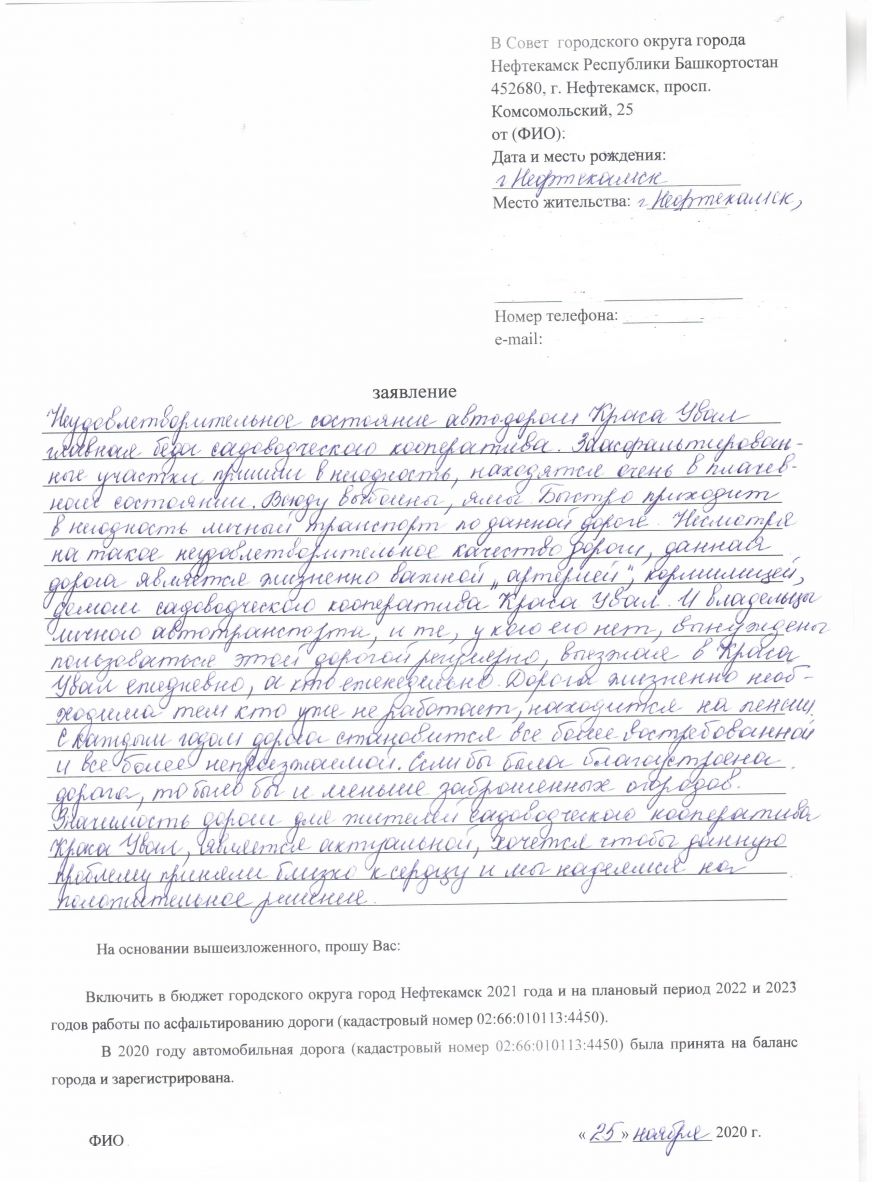 В Совет городского округа города
Нефтекамск Республики Башкортостан
452680, г. Нефтекамск, просп.
Комсомольский, 25
от (ФИО):
Дата и место рождения:
г Нефтекамск
Место жительства: г. Нефтекамск,
Номер телефона:
e-mail:
заявление
Неудовлетворительное состояние автодороги Краса Увал
главная беда садоводческого кооператива. Заасфальтирован-
ные участки пришли в негодность, находятся очень в плачев-
ном состоянии. Всюду выбоины, ямы. Быстро приходит
в негодность личный транспорт по данной дороге. Несмотря
на такое неудовлетворительное качество дороги, данная
дорога является жизненно важной „артерией", кормилицей,
домом садоводческого кооператива Краса Увал. И владельцы
личного автотранспорта, и те, у кого его нет, вынуждены
пользоваться этой дорогой регулярно, выезжая в Краса
Увал ежедневно, а кто еженедельно. Дорога жизненно необ-
ходима тем кто уже не работает, находится на пенсии.
С каждым годом дорога становится все более востребованной
и все более непроезжаемой. Если бы была благоустроена
дорога, то было бы и меньше заброшенных огородов.
Значимость дороги для жителей садоводческого кооператива
Краса Увал, является актуальной, хочется чтобы данную
проблему приняли близко к сердцу и мы надеемся на
положительное решение.
На основании вышеизложенного, прошу Вас:
Включить в бюджет городского округа город Нефтекамск 2021 года и на плановый период 2022 и 2023
годов работы по асфальтированию дороги (кадастровый номер 02:66:010113:4450).
В 2020 году автомобильная дорога (кадастровый номер 02:66:010113:4450) была принята на баланс
города и зарегистрирована.
ФИО « 25 » ноября 2020 г.